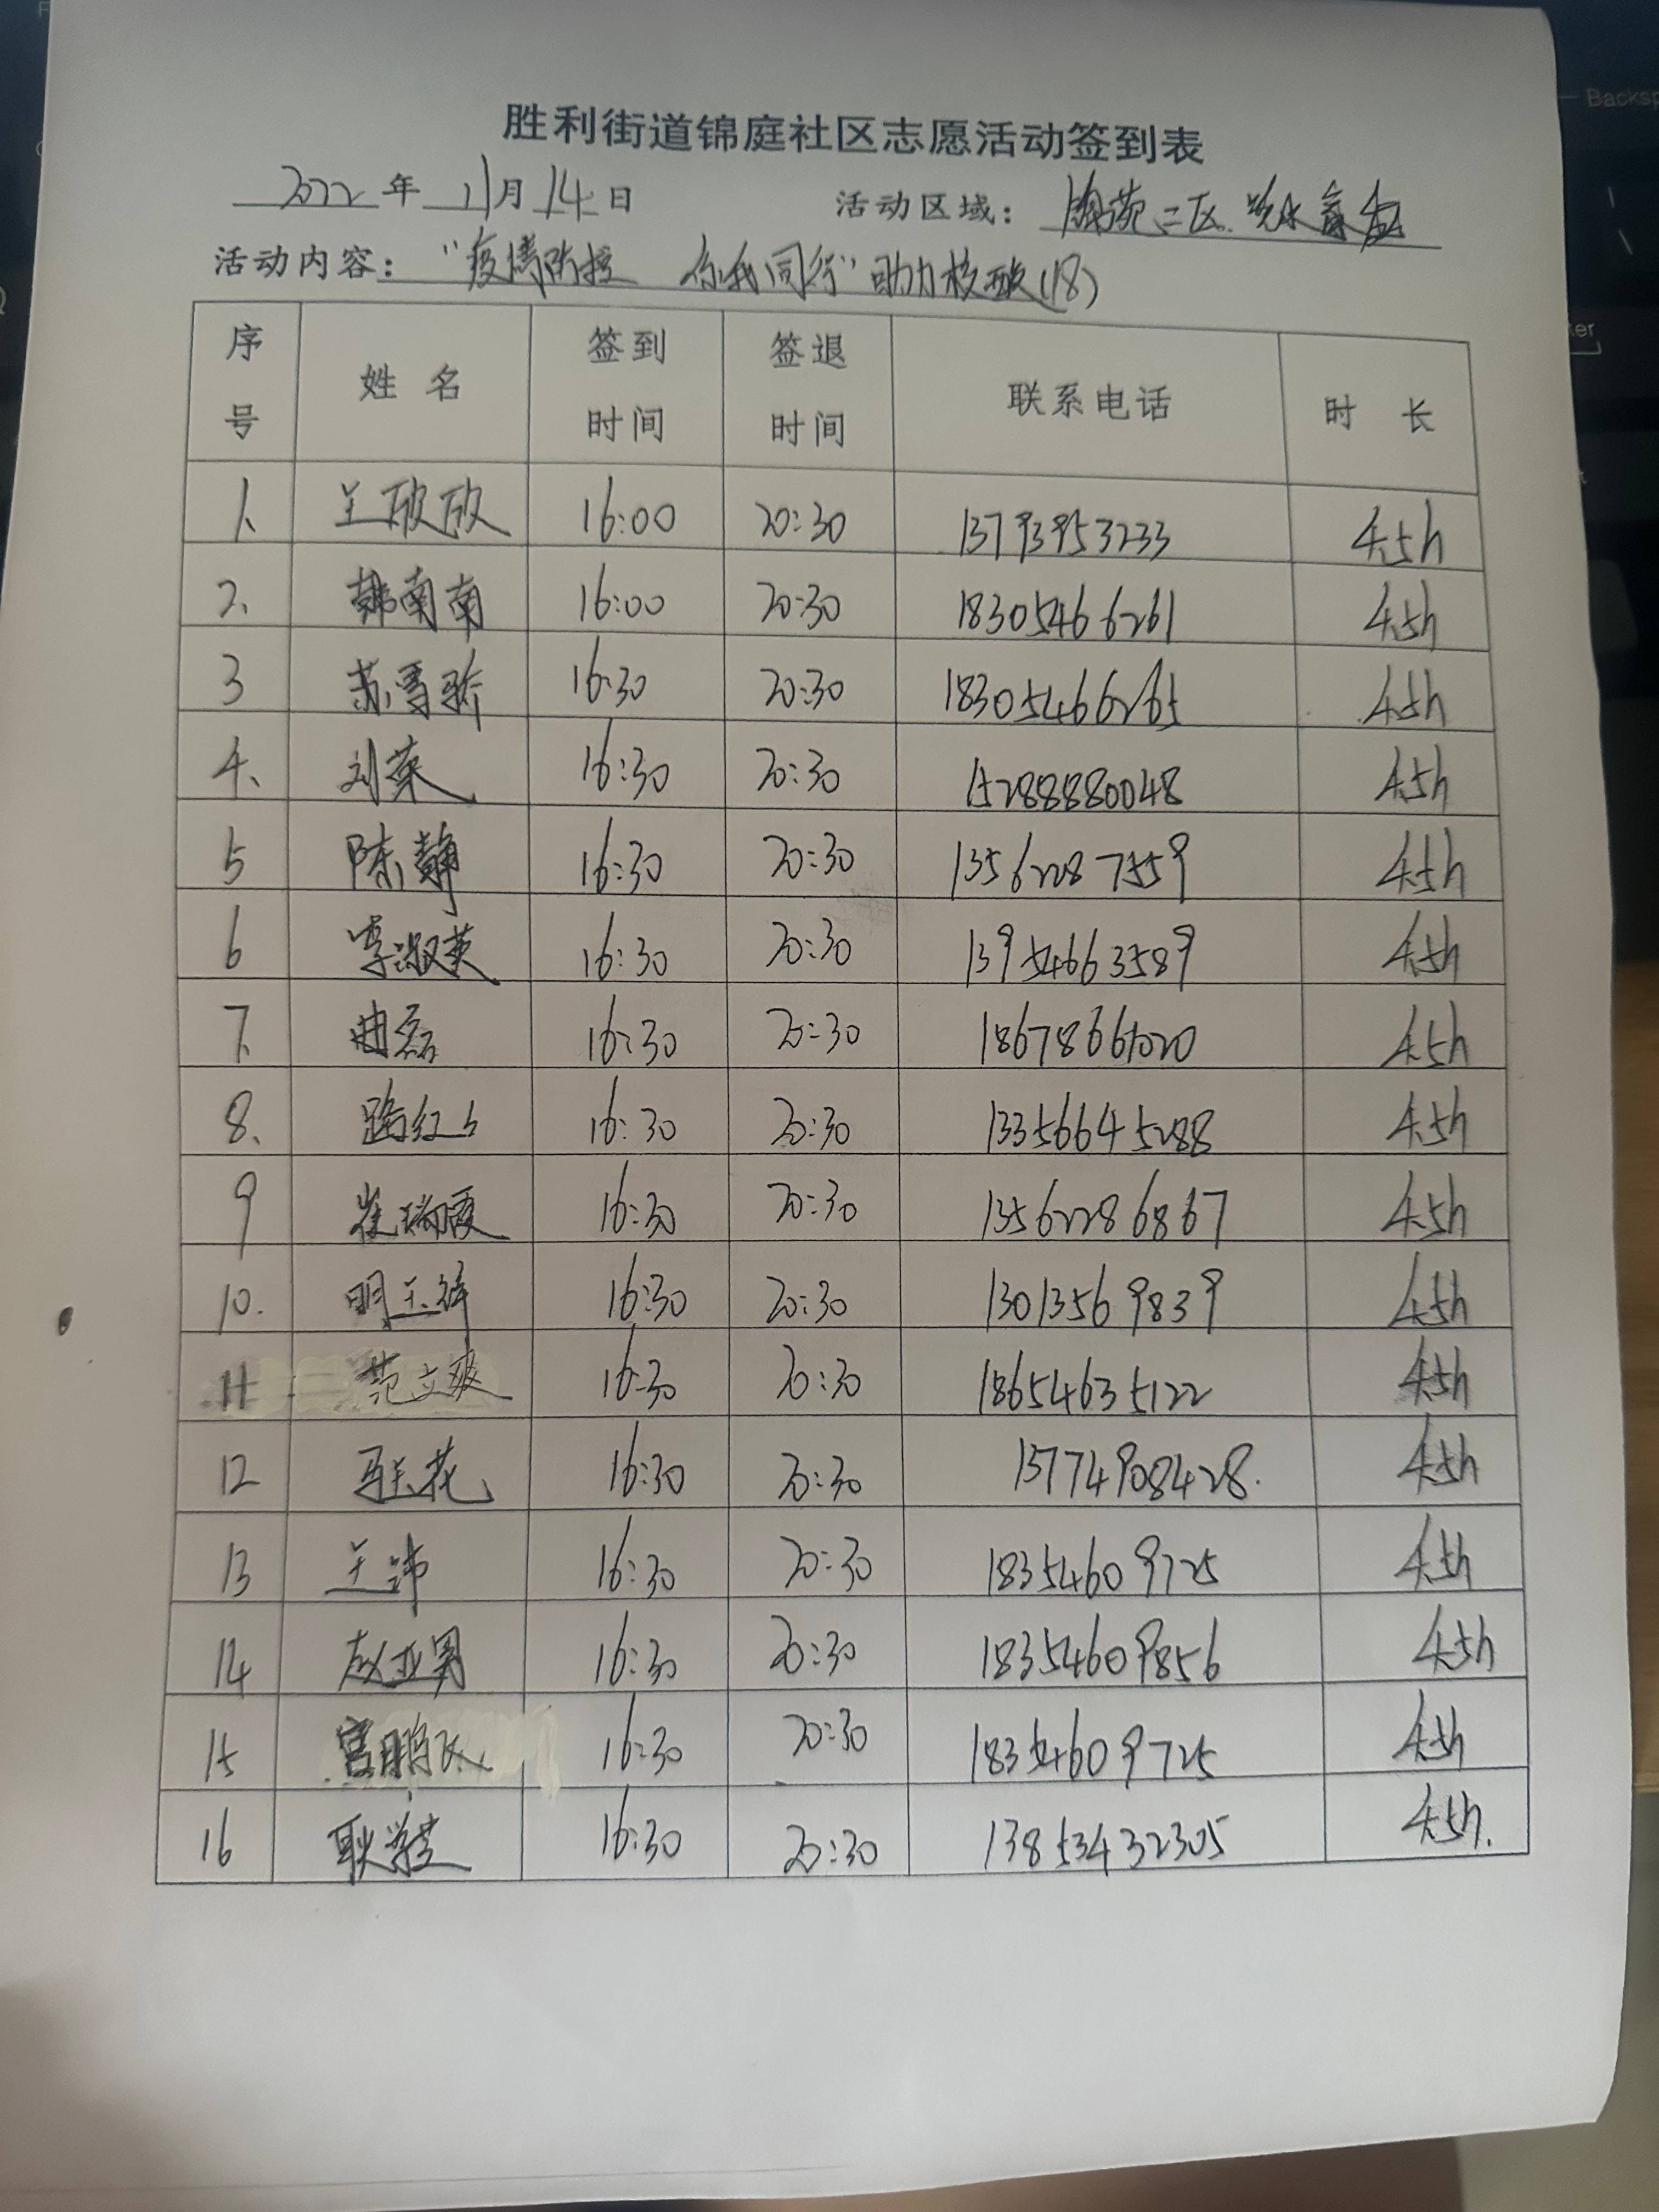 胜利街道锦庭社区志愿活动签到表
2022年 11月 14日 活动区域: 二区
活动内容: "疫情防控 你我同行"助力核酸(18)
序号 姓名 签到时间 签退时间 联系电话 时长
1、 王欣欣 16:00 20:30 13793953233 4.5h
2、 韩南南 16:00 20:30 18305466261 4.5h
3 苏雪娇 16:30 20:30 18305466265 4.5h
4、 刘荣 16:30 20:30 15288880048 4.5h
5 陈静 16:30 20:30 13562087559 4.5h
6 李淑英 16:30 20:30 13954663589 4.5h
7、 曲磊 16:30 20:30 4.5h
8、 路红 16:30 20:30 13356645288 4.5h
9 崔瑞霞 16:30 20:30 13562286867 4.5h
10. 明玉 16:30 20:30 13013569839 4.5h
11 范立爽 16:30 20:30 18654635122 4.5h
12 花 16:30 20:30 13774908428. 4.5h
13 王 16:30 20:30 18354609725 4.5h
14 赵亚男 16:30 20:30 18354609856 4.5h
15 宫鹏飞 16:30 20:30 18354609725 4.5h
16 耿学芝 16:30 20:30 13853432305 4.5h.
Backsp